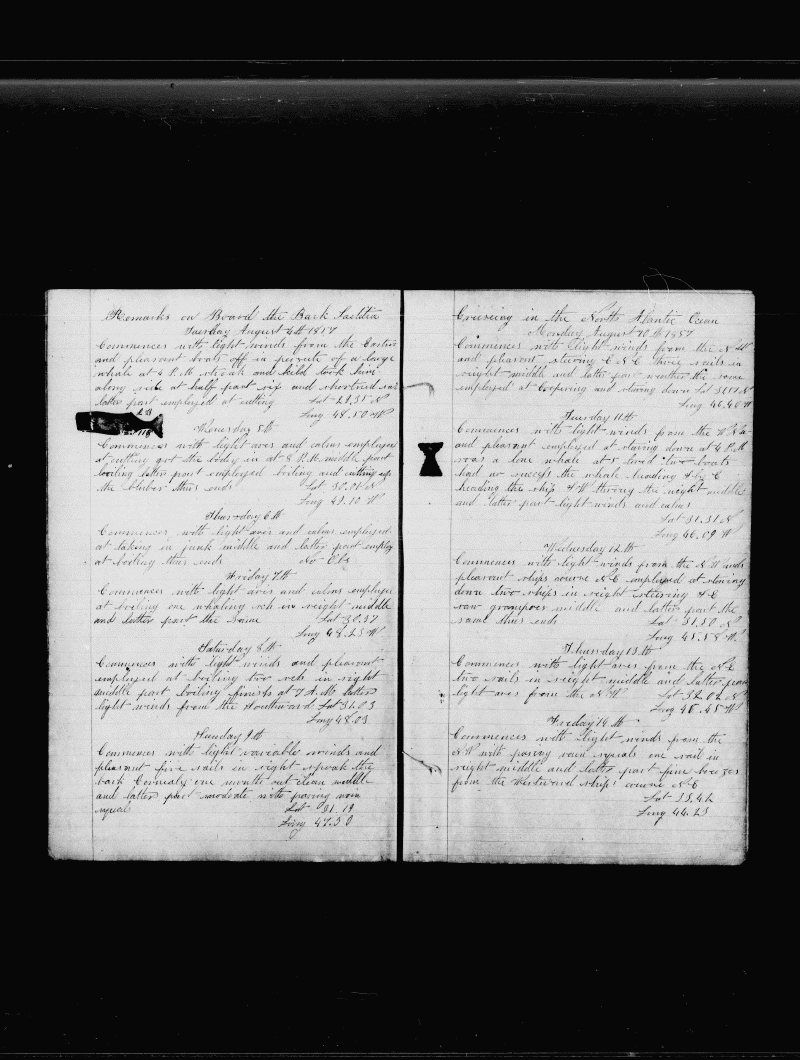 Remarks on Board the Bark Laetitia
Tuesday August 4th 1857
Commences with light winds from the Easter
and pleasant boats off in persute of a large
whale at 4 P.M struck and kild took him
along side at half past six and shortned sail
latter part employed at cutting Lat 29.35 N
Long 48.50 W
Wensday 5th
Commences with light ares and calms employed
at cutting got the body in at 8 P.M. middle part
boiling latter part employed boiling and cutting up
the bluber thus ends Lat 30.01 N
Long 49.10 W
Thursday 6th
Commences with light airs and calms employed
at taking in junk middle and latter part employ
at boiling thus ends No Obs
Friday 7th
Commences with light aires and calms employed
at boiling one whaling sch in sight middle
and latter part the same Lat 30.37
Long 48.23 W
Saturday 8th
Commences with light winds and pleasant
employed at boiling two sels in sight
middle part boiling finished at 7 A.M latter
light winds from the Southward Lat 31.03
Long 48.03
Sunday 9th
Commences with light vareable winds and
pleasant five sails in sight spoak the
bark Cornealy one month out clean middle
and latter part moderate with pasing rain
squals Lat 31.19
Long 47.30
Cruseing in the North Atlantic Ocean
Monday August 10th 1857
Commences with light winds from the N W
and pleasant stearing E N E three sails in
sight middle and latter part weather the same
employed at Coopering and stowing down Lat 31.17 N
Long 46.40 W
Tuesday 11th
Commences with light winds from the
and pleasant employed at stowing down at 4 P.M
saw a lone whale at 5 lowed two boats
had no success the whale heading
heading the ship throug the night middle
and latter part light winds and calms
Lat 31.31 N
Long 46.09 W
Wednesday 12th
Commences with light winds from the N W and
pleasant ships course N E employed at stowing
down two ships in sight steering
saw grampses middle and latter part the
same thus ends Lat 31.50 N
Long 45.58 W
Thursday 13th
Commences with light ares from the N E
two sails in sight middle and latter part
light ares from the N W Lat 32.02 N
Long 45.45 W
Friday 14th
Commences with light winds from the
N W with pasing rain squals one sail in
sight middle and latter part fine breezes
from the Westward ships course N E
Lat 33.42
Long 44.23